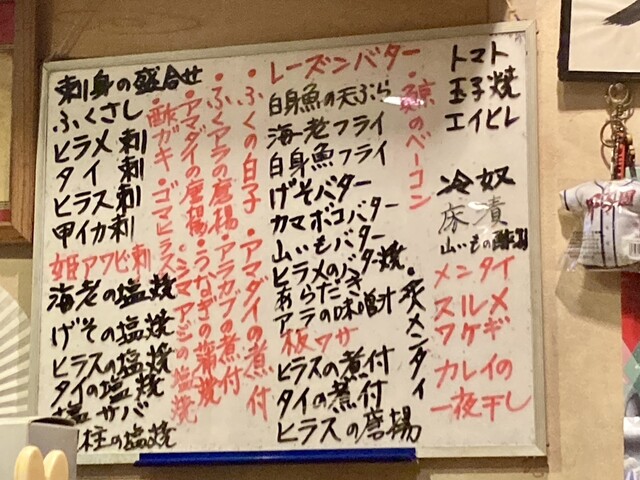 刺身の盛合せ
ふくさし
ヒラメ刺
タイ刺
ヒラス刺
甲イカ刺
姫アワビ刺
海老の塩焼
げその塩焼
ヒラスの塩焼
タイの塩焼
塩サバ
柱の塩焼
・ふくの白子・アマダイの煮付
・ふくアラの唐揚・アラカブの煮付
・アマダイの唐揚・うなぎの蒲焼
・酢ガキ・ゴマヒラス・シマアジの塩焼
レーズンバター
白身魚の天ぷら
海老フライ
白身魚フライ
げそバター
カマボコバター
山いもバター
ヒラメのバター焼
あらだき
アラの味噌汁
板ワサ
ヒラスの煮付
タイの煮付
ヒラスの唐揚
・鯨のベーコン
・炙メンタイ
トマト
玉子焼
エイヒレ
冷奴
床漬
山いもの
メンタイ
スルメ
ワケギ
カレイの
一夜干し